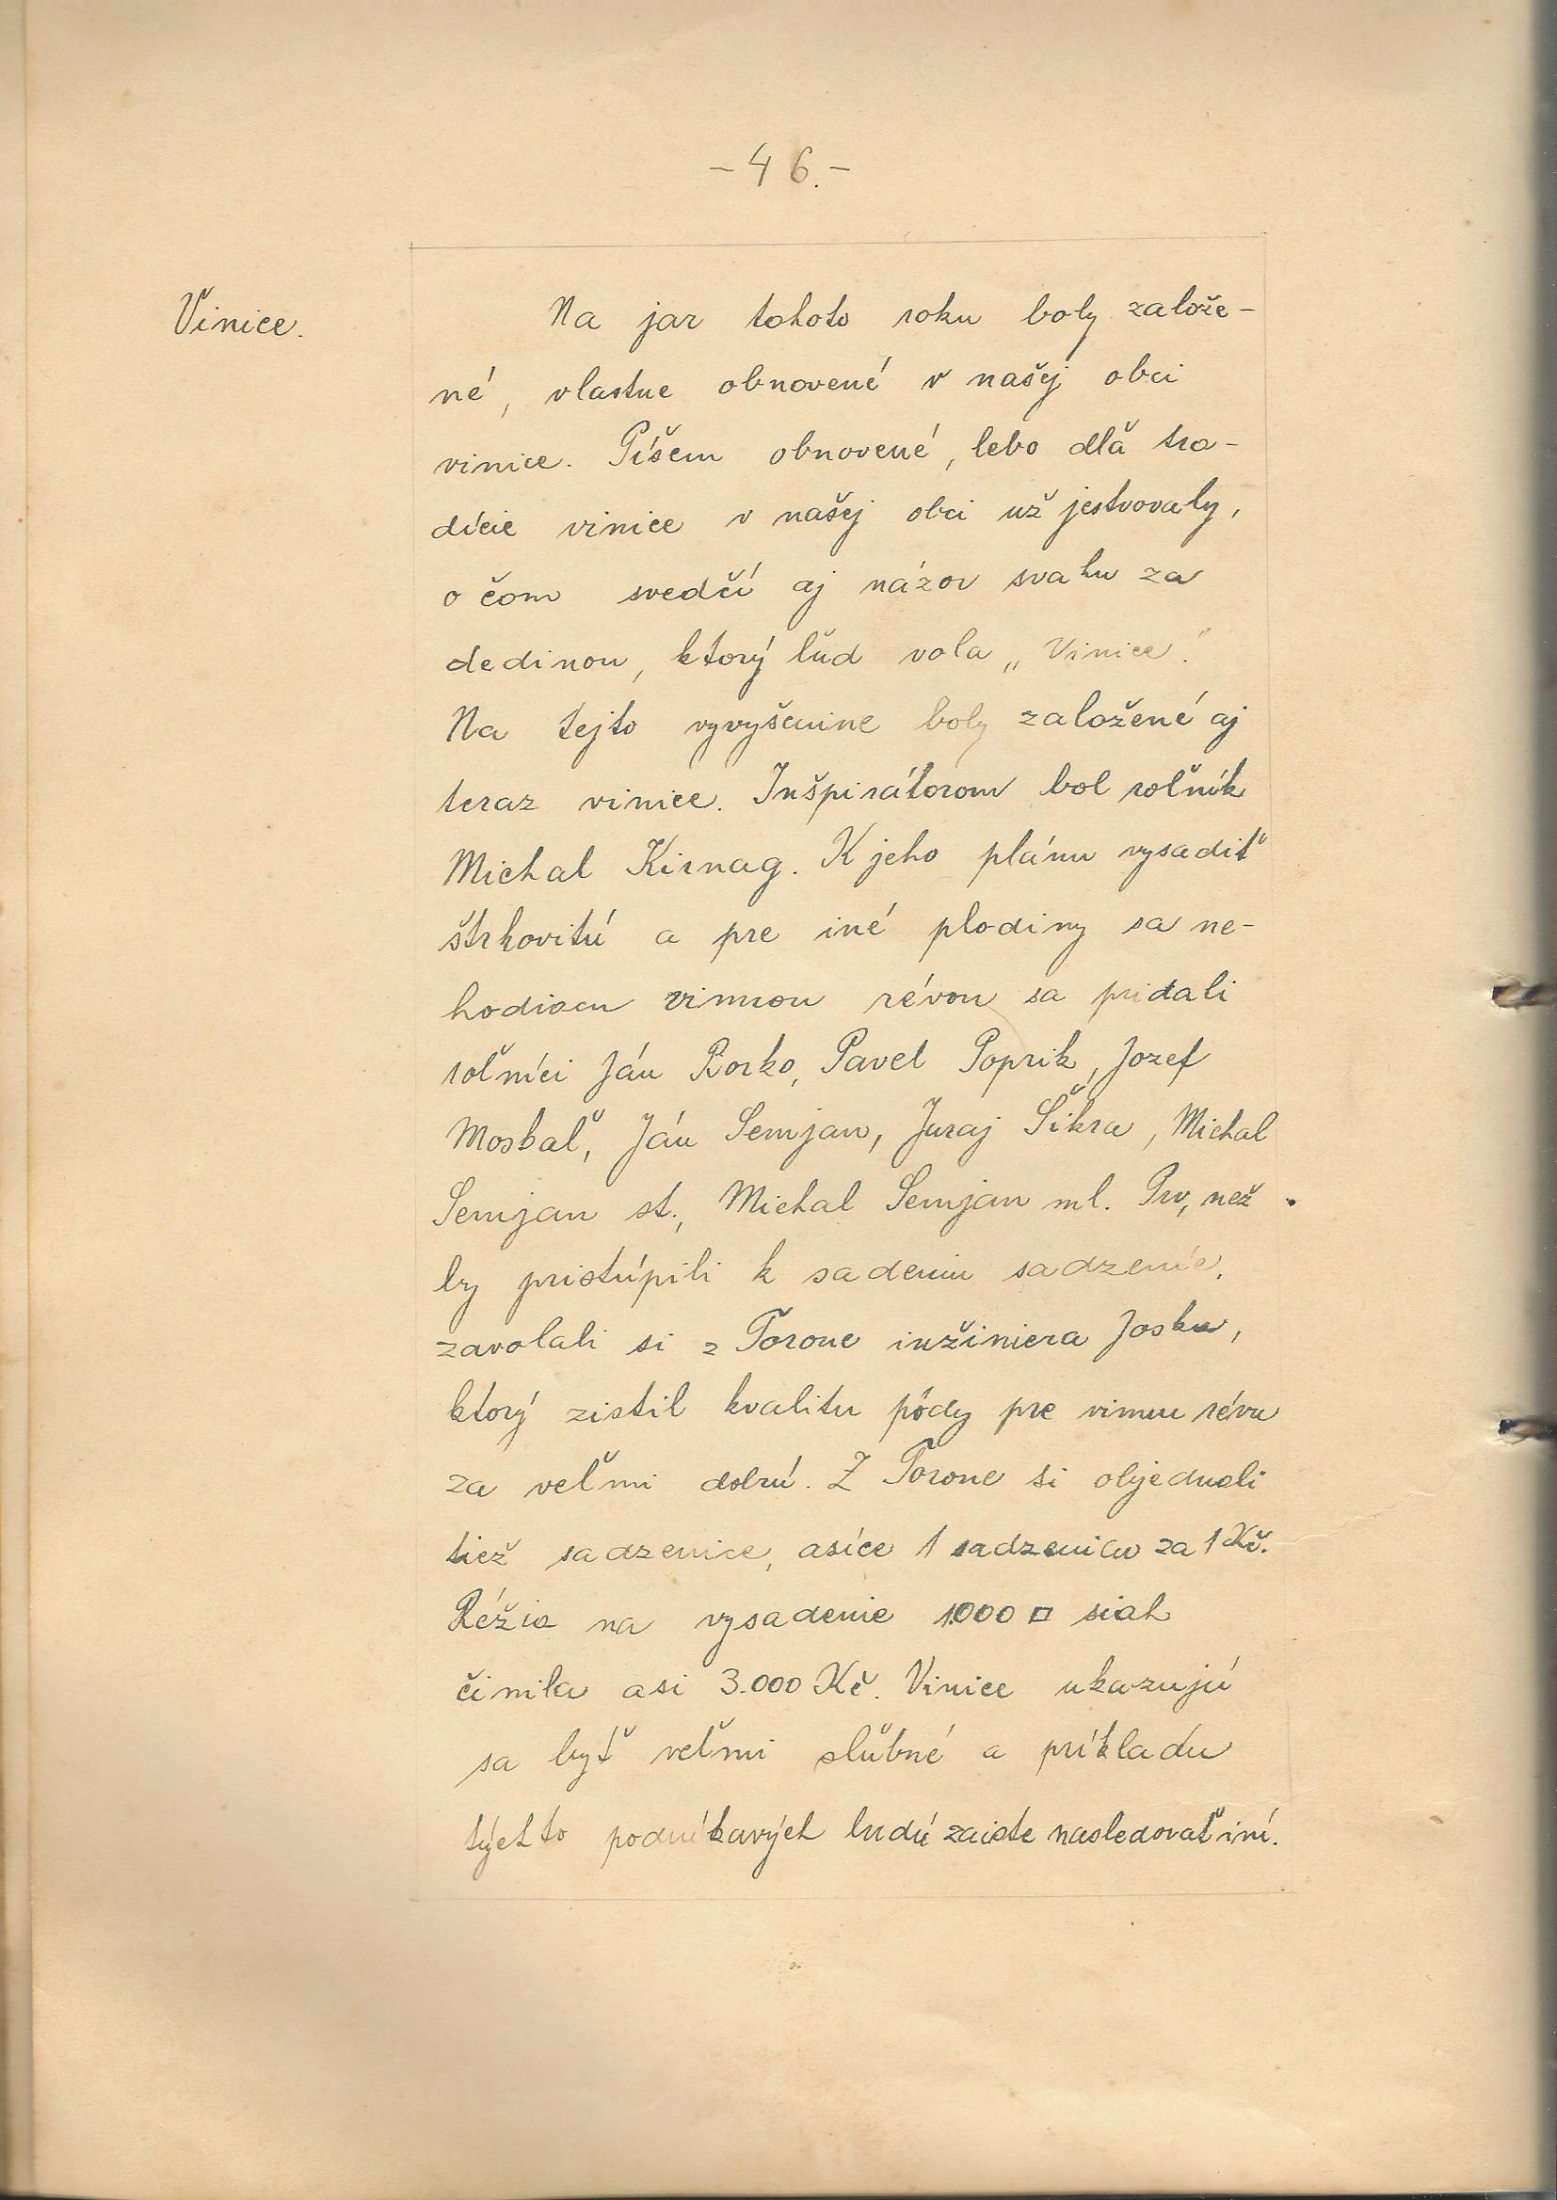 - 46. -
Vinice.
Na jar tohoto roku boly založe-
né, vlastne obnovené v našej obci
vinice. Píšem obnovené, lebo dľa tra-
dície vinice v našej obci už jestvovaly,
o čom svedčí aj názov svahu za
dedinou, ktorý ľud vola „Vinice".
Na tejto vyvyšenine boly založené aj
teraz vinice. Inšpirátorom bol roľník
Michal Kirnag. K jeho plánu vysadiť
štrkovitú a pre iné plodiny sa ne-
hodiacu vinnou révou sa pridali
roľníci Ján Borko, Pavel Poprik, Jozef
Moskaľ, Ján Semjan, Juraj Šikra, Michal
Semjan st., Michal Semjan ml. Prv, než
by pristúpili k sadeniu sadzeníc,
zavolali si z Torone inžiniera Joska,
ktorý zistil kvalitu pôdy pre vinnu révu
za veľmi dobrú. Z Torone si objednali
tiež sadzenice, asíce 1 sadzenicu za 1 Kč.
Réžia na vysadenie 1000 □ siah
činila asi 3.000 Kč. Vinice ukazujú
sa byť veľmi sľubné a príkladu
týchto podnikavých ludú zaiste nasledovať iní.